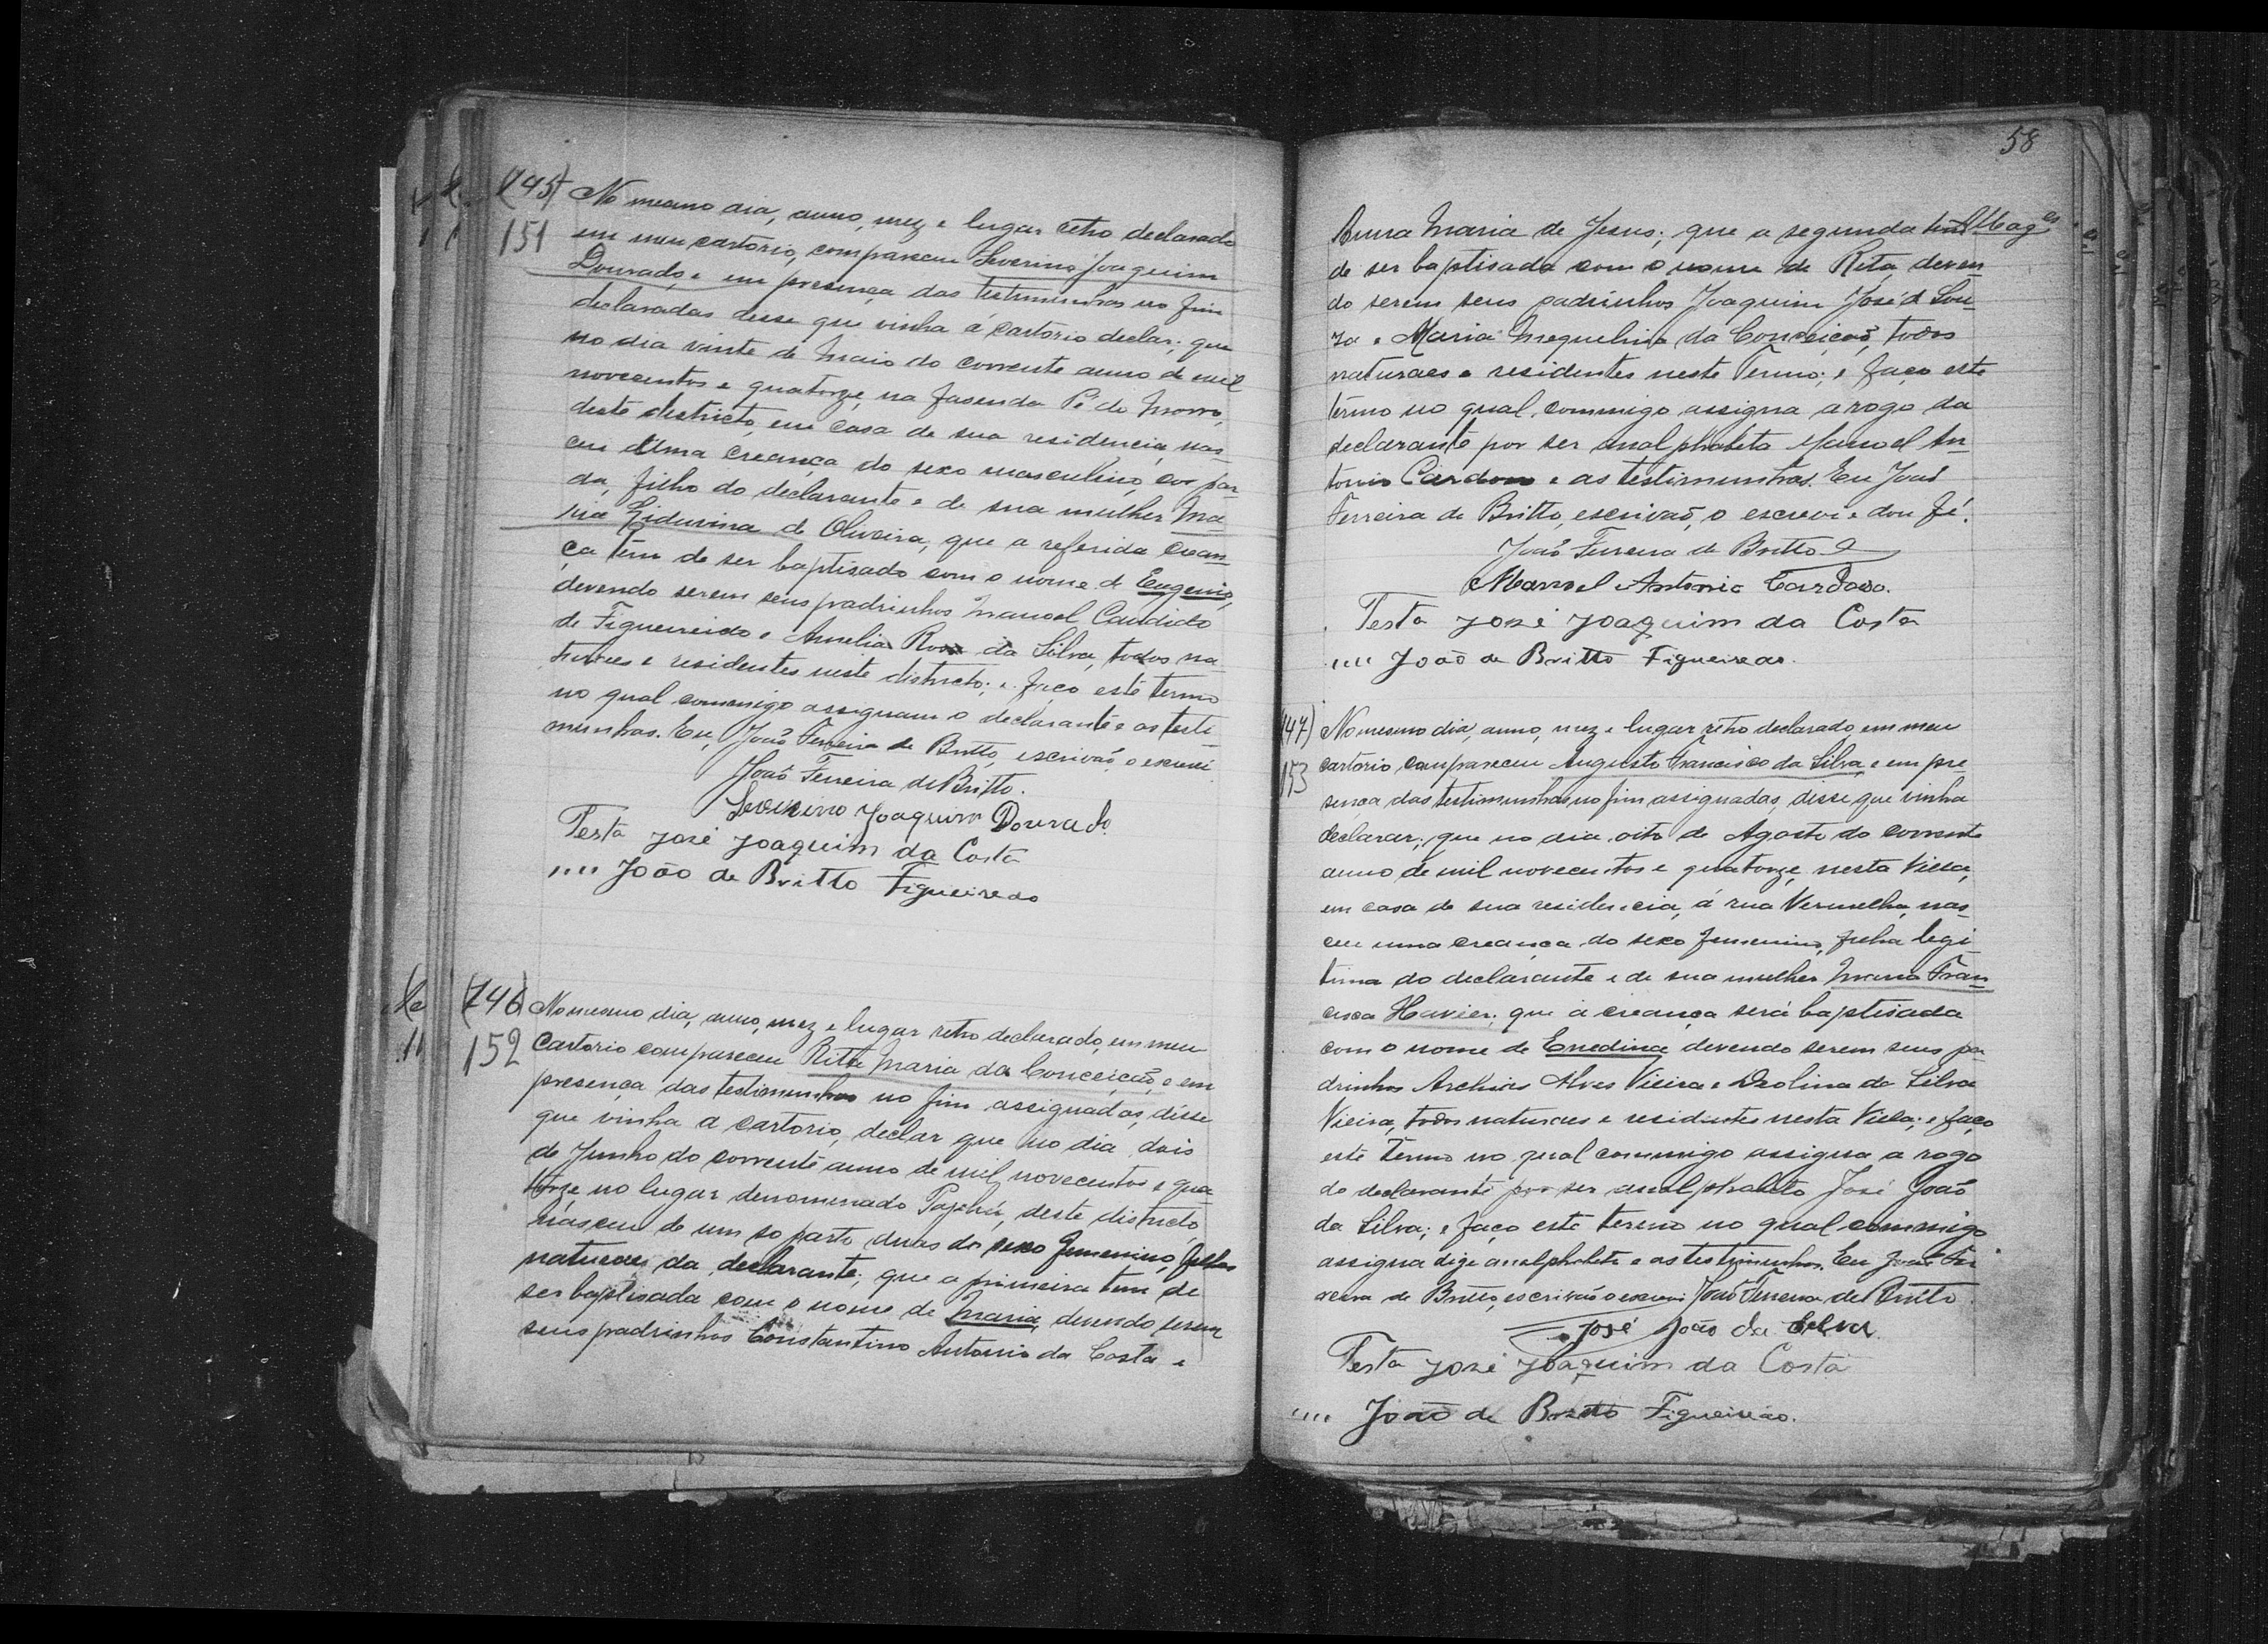 (145) No mesmo dia, anno, mez e lugar retro declarado
151 em meu cartorio, compareceu Severino Joaquim
Dourado, e em presença das testimunhas no fim
declaradas disse que vinha á cartorio declar; que
no dia vinte de Maio do corrente anno de mil
novecentos e quatorze, na fasenda Pé do Morro,
deste destricto, em casa de sua residencia, nas-
ceu uma creança do sexo masculino, cor par-
da, filho do declarante e de sua mulher Ma-
ria Liduvina de Oliveira, que a referida crean-
ça tem de ser baptisado com o nome de Eugenio,
devendo serem seus padrinhos Manoel Candido
de Figueireido e Amelia Rosa da Silva, todos na-
turaes e residentes neste districto; e faço este termo
no qual commigo assignam o declarante e as testi-
munhas. Eu, João Ferreira de Britto, escrivaõ, o escrevi.
João Ferreira de Britto.
Severino Joaquim Dourado.
Testa José Joaquim da Costa
,,,, João de Britto Figueiredo
(146) No mesmo dia, anno, mez e lugar retro declarado, em meu
152 Cartorio compareceu Rita Maria da Conceição, e em
presença das testimunhas no fim assignadas, disse
que vinha a cartorio, declar que no dia dois
de Junho do corrente anno de mil novecentos e qua-
torze no lugar denominado Pajehú, deste districto,
nasceu de um so parto duas do sexo femenino, filhas
naturaes da declarante; que a primeira tem de
ser baptisada com o nome de Maria, devendo serem
seus padrinhos Constantino Antonio da Costa e
58
Anna Maria de Jesus; que a segunda tem
de ser baptisada com o nome de Rita deven-
do serem seus padrinhos Joaquim José d Sou-
za e Maria Miquelina da Conceição, todos
naturaes e residentes neste Termo; e faço este
termo no qual commigo assigna a rogo da
declarante por ser analphabeta Manoel An-
tonio Cardoso e as testimunhas. Eu João
Ferreira de Britto, escrivaõ, o escrevi e dou fé.
João Ferreira de Britto
Manoel Antonio Cardoso.
Testa José Joaquim da Costa
,,,, João de Britto Figueiredo.
147) No mesmo dia, anno, mez e lugar retro declarado, em meu
153 cartorio, compareceu Augusto Francisco da Silva, e em pre-
sença das testimunhas no fim assignadas, disse que vinha
declarar; que no dia oito de Agosto do corrente
anno de mil novecentos e quatorze, nesta Villa,
em casa de sua residencia, á rua Vermelha, nas-
ceu uma creança do sexo femenino, filha legi-
tima do declarante e de sua mulher Maria Fran-
cisca Havier; que a creança será baptisada
com o nome de Enedina devendo serem seus pa-
drinhos Archias Alves Vieira e Deolina da Silva
Vieira, todos naturaes e residentes nesta Villa; e faço
este termo no qual commigo assigna a rogo
do declarante por ser analphabeto José João
da Silva; e faço este termo no qual commigo
assigna digo analphabeto e as testimunhas. Eu João Fer-
reira de Britto, escrivão o escrevi. João Ferreira de Britto.
José João da Silva.
Testa José Joaquim da Costa
,,,, João de Britto Figueiredo.